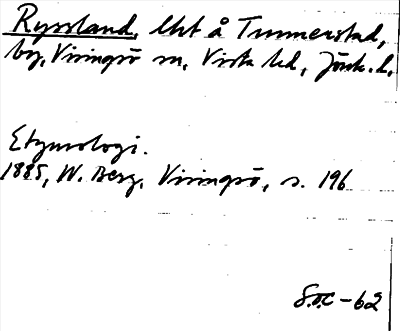 Ryssland, lht å Tunnerstad,
by, Visingsö sn, Vista hd, Jönk. l.
Etymologi.
1885, W. Berg, Visingsö, s. 196
S.O.C -62